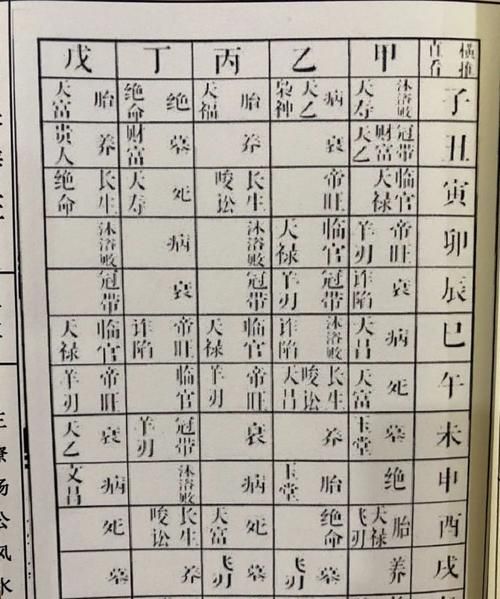 横推直看 甲 乙 丙 丁 戊
子 沐浴败 天寿 病 天乙 枭神 胎 天福 绝 绝命 胎 天富
丑 冠带 财富 天乙 衰 养 墓 财富 养 贵人
寅 临官 天禄 帝旺 长生 唆讼 死 天寿 长生 绝命
卯 帝旺 羊刃 临官 天禄 沐浴败 病 沐浴败
辰 衰 诈陷 冠带 羊刃 衰 冠带
巳 病 天昌 沐浴败 诈陷 临官 天禄 帝旺 诈陷 临官 天禄
午 死 天富 长生 唆讼 天昌 帝旺 羊刃 临官 帝旺 羊刃
未 墓 玉堂 养 衰 冠带 羊刃 衰 天乙
申 绝 胎 玉堂 病 沐浴败 病 文昌
酉 胎 天禄 飞刃 绝命 死 天富 长生 唆讼 死
戌 养 墓 飞刃 墓 飞刃 养 墓
公风水